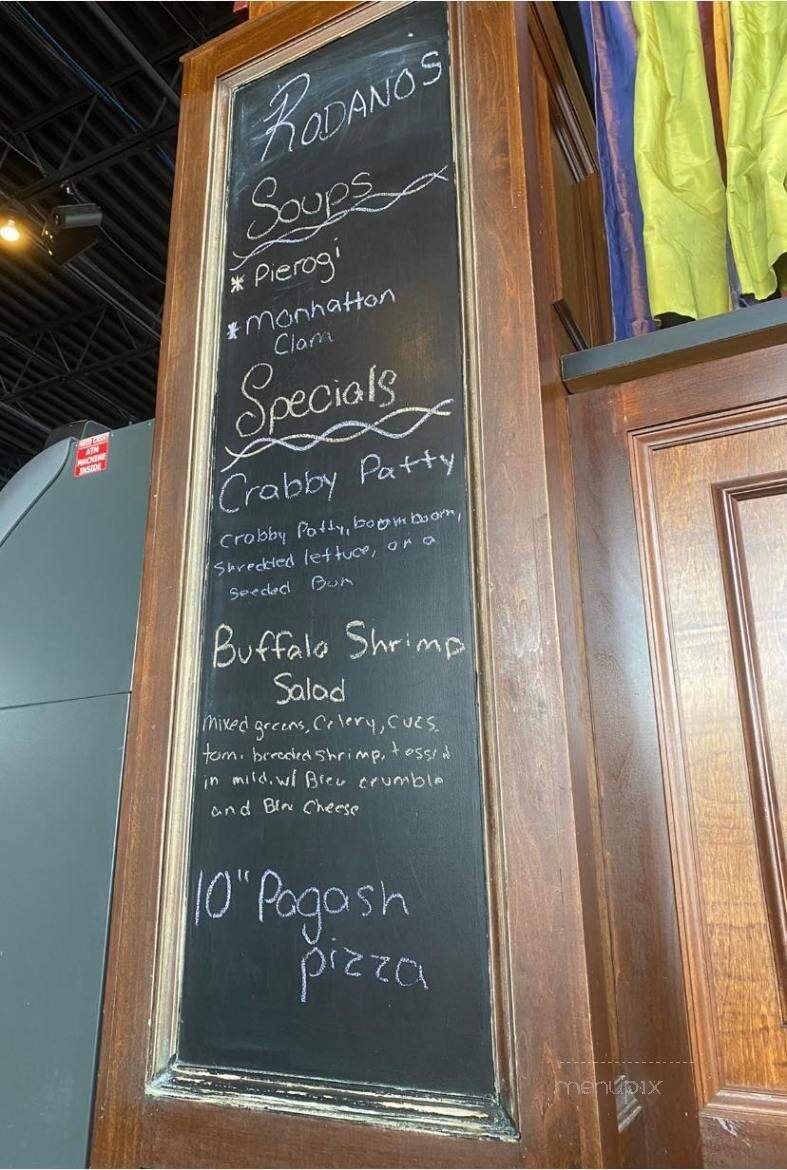 RODANOS
Soups
* Pierogi
* Manhattan
Clam
Specials
Crabby Patty
Crabby Patty, boom boom,
shredded lettuce, on a
seeded Bun
Buffalo Shrimp
Salad
mixed greens, Celery, Cucs,
tom. breaded shrimp, tossed
in mild, w/ Bleu crumble
and Bleu Cheese
10" Pagash
pizza
NEED CASH?
ATM
MACHINE
INSIDE
menupix